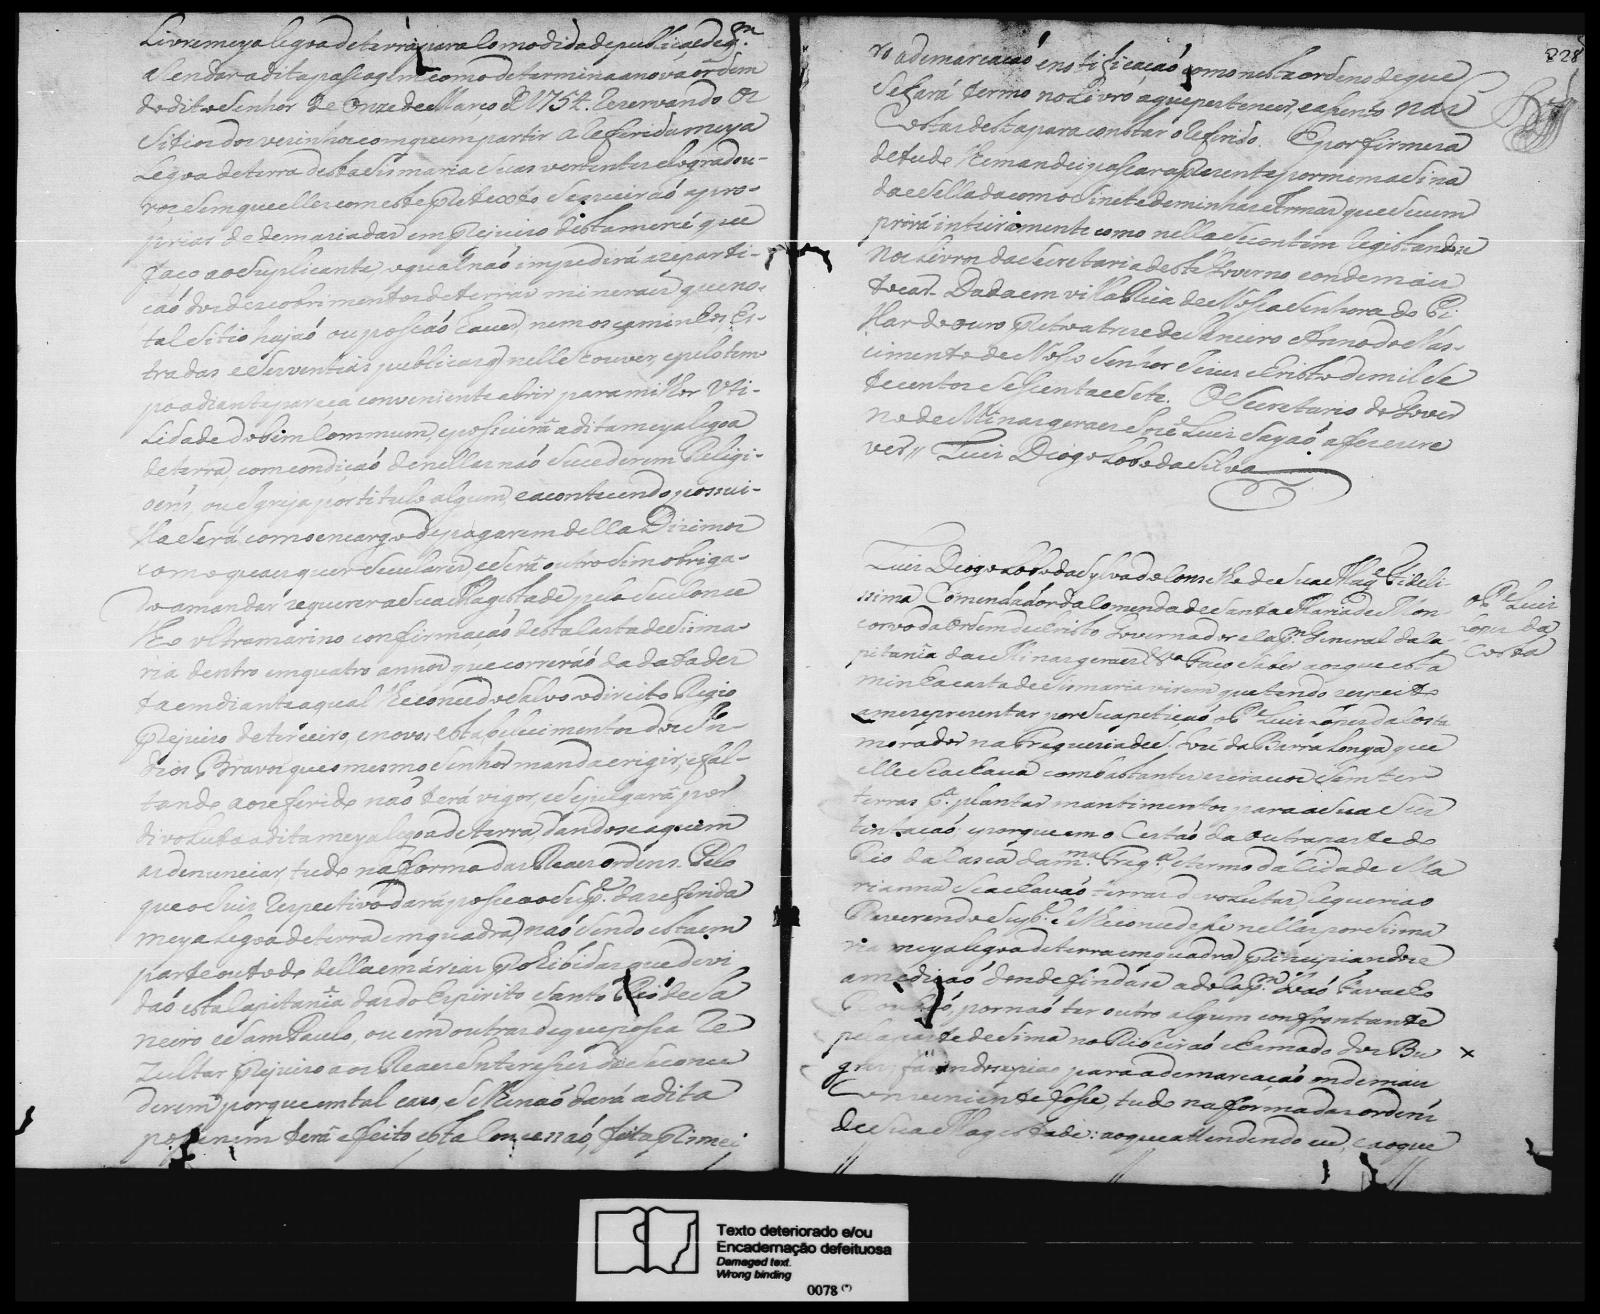 Livre meya legoa de terra para comodidade publica e de qm.
alendar a dita pasagem como determina a nova ordem
do dito Senhor de Onze de Março de 1754. rezervando os
Sitios dos vezinhos com quem partir a referida meya
Legoa de terra desta Sismaria e suas vertentes e logradou-
ros sem que elles com este pretexto se queirão apro-
priar de demaziadas em prejuizo desta mercê que
faço ao Suplicante, o qual não impedirá a reparti-
ção dos descobrimentos de terras mineraes que no
tal Sitio hajaó ou possaó haver, nem os caminhos Es-
tradas e Serventias publicas q nelle houver, e pelo tem
po adiante pareça conveniente abrir para milhor Uti-
Lidade do bem Commum, e possuirá a dita meya legoa
de terra, com condição de nellas naó sucederem Religi-
oens, ou Igreja por titulo algum, e acontecendo possui-
lla Será com o encargo de pagarem della Dizimos
como quaesquer Seculares, e será outro sim obriga-
do a mandar requerer a Sua Magestade pelo Seu Conce
lho Ultramarino confirmação desta Carta de Sisma-
ria dentro em quatro annos que correráó da data des
ta em diante a qual lhe concedo salvo o direito Regio
prejuizo de terceiro, e novos estabelecimentos dos In-
dios Bravos que o mesmo Senhor manda erigir, e fal-
tando ao referido naó terá vigor, e se julgará por
divoluta a dita meya legoa de terra, dando se a quem
as denunciar, tudo na forma das Reaes ordens. Pelo
que o Juiz respectivo dará posse ao Supe. da referida
meya Legoa de terra em quadra, naó sendo esta em
parte ou todo della em áreas prohibidas que devi
daó esta Capitania das do Espirito Santo Rio de Ja
neiro e Sam Paulo, ou em outras de que possa Re
zultar prejuizo aos Reaes Interesses de se conce
derem, porque em tal cazo, se lhe naó dará a dita
posse nem terá efeito esta Concessaó, feita primei
228
ro a demarcaçaó e notificaçaó como nesta ordeno de que
Se fará termo no Livro a que pertencer, e asento nas
Costas desta para constar o referido. E por firmeza
de tudo lhe mandei passar a prezente por mim asina
da e Sellada com o Sinete de minhas Armas que se cum
prirá inteiramente como nella se contém registando se
nos Livros da Secretaria deste Governo e onde mais
tocar. Dada em villa Rica de Nossa Senhora do Pi
llar do ouro preto a treze de Janeiro Anno do Nas-
cimento de Nosso Senhor Jesus Christo de mil Se
tecentos Sessenta e Sete. O Secretario do Gover
no de Minas geraes José Luiz Sayaó a fez escre
ver // Luiz Diogo Lobo da Silva
Luiz Diogo Lobo da Sylva do Conselho de Sua Mage. Fideli-
ssima Comendador da Comenda de Santa Maria de Mon
corvo da Ordem de Cristo Governador e Capm. General da Ca-
pitania das Minas geraes &a Faço Saber aos que esta
minha carta de Sismaria virem que tendo respeito
a me reprezentar por sua petição o Pe. Luiz Lopes da Costa
morador na Freguezia de S. José da Barra Longa, que
elle se achava com bastantes escravos e sem ter
terras pa. plantar mantimentos para a sua Sus
tentaçaó, e porque em o Certaó da outra parte do
Rio da Casca da ma. Frega. e termo da Cidade Ma
rianna se achavaó terras devolutas, requeria o
Reverendo Supe. lhe concedesse nellas por Sisma
ria meya legoa de terra em quadra, principiando se
a mediçaó donde findase a do Capm. Joaó Favacho
Roubaó, por naó ter outro algum confrontante
pela parte de Sima no Ribeiraó chamado dos Bu
gres, fazendo se piaó para a demarcaçaó onde mais
conveniente fosse, tudo na forma das ordens
de Sua Magestade: ao que attendendo eu, e ao que
o Pe. Luiz
Lopes da
Costa
x
Texto deteriorado e/ou
Encadernação defeituosa
Damaged text.
Wrong binding
0078 (*)